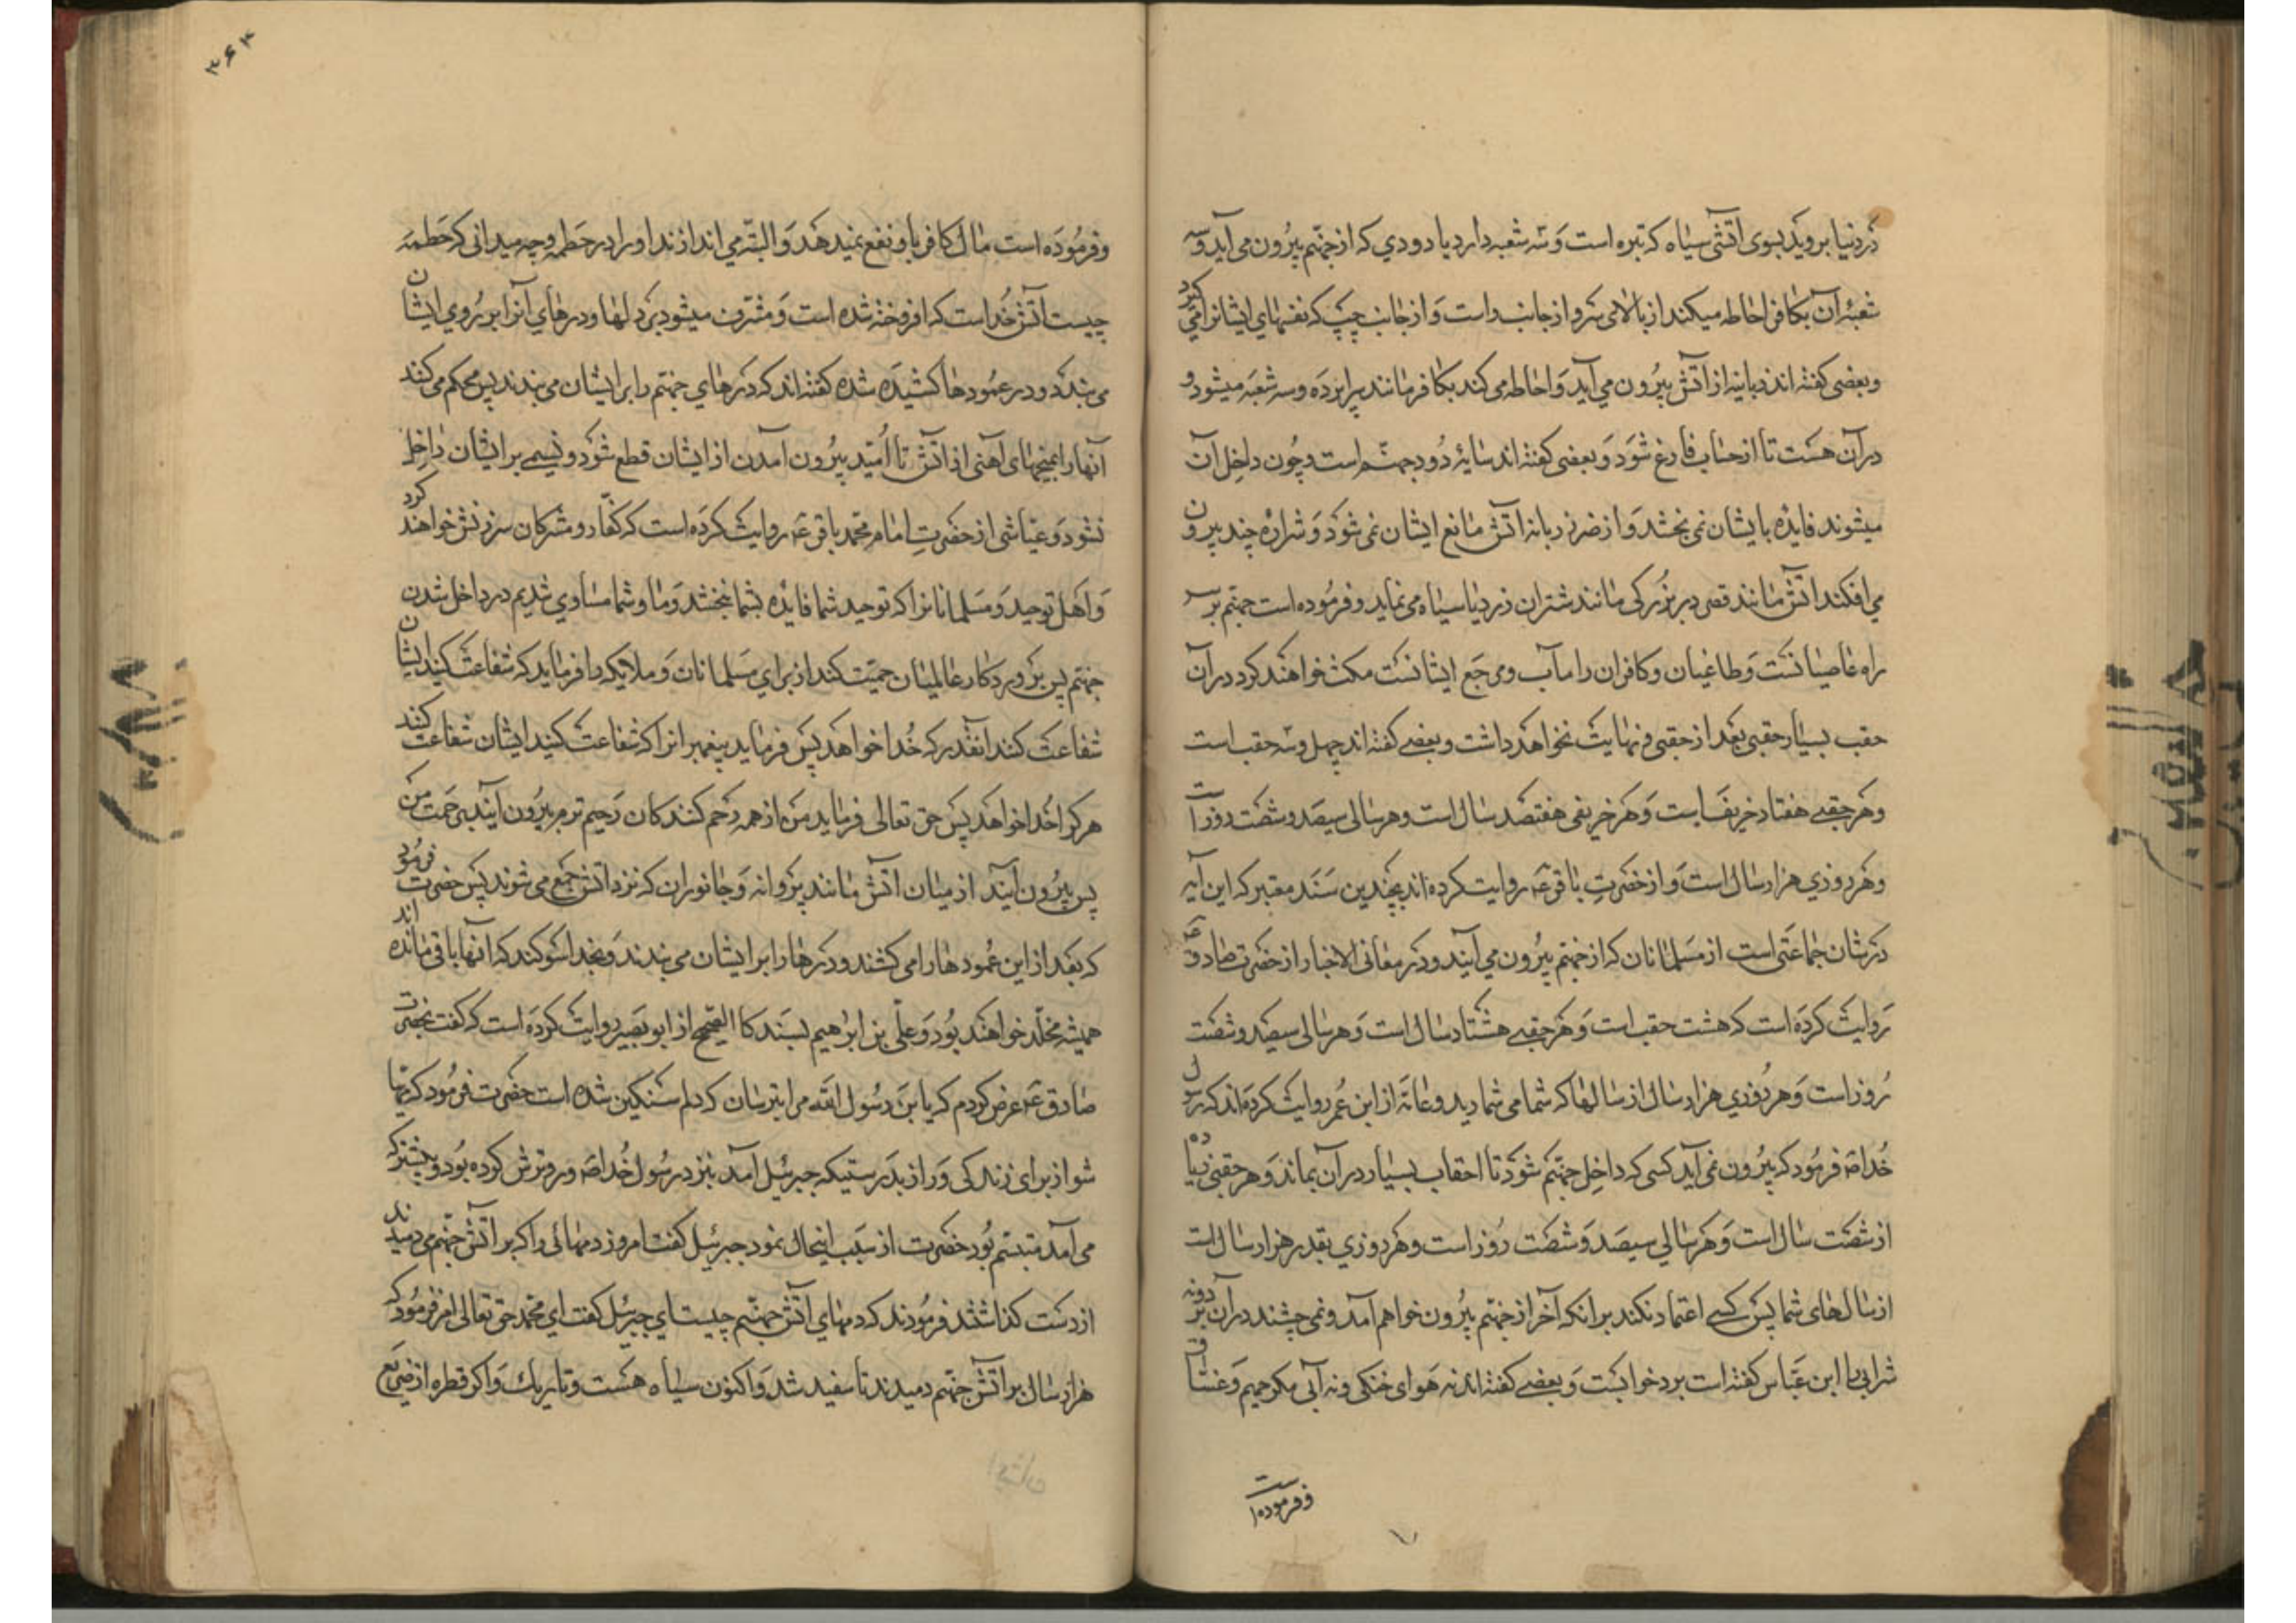 در دنیا بروید بسوی اتشی سیاه که تیره است و سه شعبه دارد یا دودی که از جهنم بیرون می آید و سه
شعبهٔ آن بکافر احاطه میکند از بالای سر و از جانب راست و از جانب چپ که نفسهای ایشانرا می گیرد
و بعضی گفته اند زبانیه از آتش بیرون می آید و احاطه می کند بکافر مانند پراپرده و سه شعبه میشود و
در آن هست تا از حساب فارغ شود و بعضی گفته اند سایهٔ دود جهنم است و چون داخل آن
میشوند فایده بایشان نمی بخشد و از ضرر زبانه اتش مانع ایشان نمی شود و شراره چند بیرون
می افکند اتش مانند قصر در بزرگی مانند شتران زرد یا سیاه می نماید و فرموده است جهنم بر سر
راه عاصیانست و طاغیان و کافران را مآب و مرجع ایشانست مکث خواهند کرد در آن
حقب بسیار حقبی بعد از حقبی و نهایت نخواهد داشت و بعضی گفته اند چهل و سه حقب است
و هر حقبی هفتاد خریف است و هر خریفی هفتصد سال است و هر سالی سیصد و شصت روز است
و هر روزی هزار سال است و از حضرت باقر عه روایت کرده اند بچندین سند معتبر که این آیه
در شان جماعتی است از مسلمانان که از جهنم بیرون می آیند و در معانی الاخبار از حضرت صادق عه
روایت کرده است که هشت حقب است و هر حقبی هشتاد سال است و هر سالی سیصد و شصت
روز است و هر روزی هزار سال از سالها که شما می شمارید و عامّه از ابن عمر روایت کرده اند که رسول
خدا صه فرمود که بیرون نمی آید کسی که داخل جهنم شود تا احقاب بسیار در آن بماند و هر حقبی زیاده
از شصت سال است و هر سالی سیصد و شصت روز است و هر روزی بقدر هزار سال است
از سال های شما پس کسی اعتماد نکند بر انکه آخر از جهنم بیرون خواهم آمد و نمی چشند در آن بردی و نه
شرابی را ابن عباس گفته است برد خوابست و بعضی گفته اند نه هوای خنکی و نه آبی مگر حمیم و غساق
و فرموده است
۳۶۴
و فرموده است مال کافر باو نفع نمیدهد و البته می اندازند او را در حطمه و چه میدانی که حطمه
چیست آتش خداست که افروخته شده است و مشرف میشود بر دلها و درهای آنرا بر روی ایشان
می بندند و در عمودها کشیده شده گفته اند که درهای جهنم را بر ایشان می بندند پس محکم می کنند
آنها را بمیخهای آهنی از آتش تا امید بیرون آمدن از ایشان قطع شود و نسیمی بر ایشان داخل
نشود و عیاشی از حضرت امام محمد باقر عه روایت کرده است که کفار و مشرکان سرزنش خواهند کرد
و اهل توحید و مسلمانانرا که توحید شما فایده بشما نبخشد و ما و شما مساوی شدیم در داخل شدن
جهنم پس پروردگار عالمیان حمیّت کند از برای مسلمانان و ملایکه را فرماید که شفاعت کنید ایشان
شفاعت کنند انقدر که خدا خواهد پس فرماید پیغمبرانرا که شفاعت کنید ایشان شفاعت کنند
هر کرا خدا خواهد پس حق تعالی فرماید من از همه رحم کنندکان رحیم ترم بیرون آیند برحمت من
پس بیرون آیند از میان آتش مانند پروانه و جانوران که نزد اتش جمع می شوند پس حضرت فرمود
که بعد از این عمودها را می کشند و درها را بر ایشان می بندند و بخدا سوکند که آنها باقی مانده اند
همیشه مخلد خواهند بود و علی بن ابراهیم بسند کالصحیح از ابو بصیر روایت کرده است که گفت بحضرت
صادق عه عرض کردم که یابن رسول الله مرا بترسان که دلم سنگین شده است حضرت فرمود که مهیا
شو از برای زندگی دراز بدرستیکه جبرئیل آمد بنزد رسول خدا صه و رو ترش کرده بود و پیشتر که
می آمد متبسم بود حضرت از سبب اینحال نمود جبرئیل گفت امروز دمهائی را که بر آتش جهنم می دمیدند
از دست گذاشتند فرمودند که دمهای آتش جهنم چیست ای جبرئیل گفت ای محمد حق تعالی امر فرمود که
هزار سال بر آتش جهنم دمیدند تا سفید شد و اکنون سیاه هست و تاریک و اگر قطره از ضریع